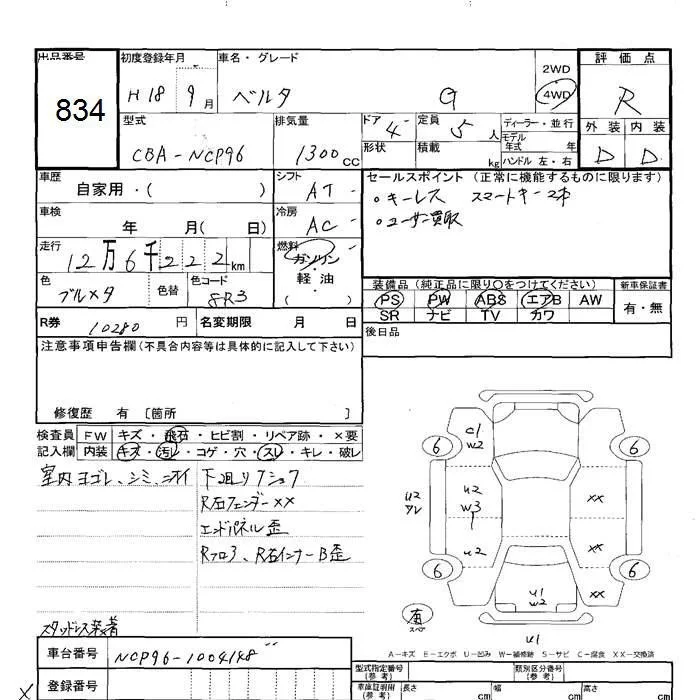 出品番号
834
初度登録年月 車名・グレード 評価点
H18 9月 ベルタ G 2WD 4WD R
型式 排気量 ドア 4 定員 5人 ディーラー・並行 外装 内装
CBA-NCP96 1300cc 形状 積載 kg モデル年式 年 ハンドル 左・右 D D
車歴 シフト セールスポイント(正常に機能するものに限ります)
自家用・( ) AT 。キーレス スマートキー2本
車検 冷房 。ユーザー買取
年 月( 日) AC
走行 燃料
12万6千222km ガソリン・軽油
色 色替 色コード 装備品(純正品に限り○をつけてください) 新車保証書
ブルメタ 8R3 PS PW ABS エアB AW 有・無
SR ナビ TV カワ
R券 10280円 名変期限 月 日 後日品
注意事項申告欄(不具合内容等は具体的に記入して下さい)
修復歴 有 〔箇所
検査員 FW キズ・飛石・ヒビ割・リペア跡・×要
記入欄 内装 キズ・汚レ・コゲ・穴・スレ・キレ・破レ
室内ヨゴレ、シミ、ニオイ 下廻りフショク
R右フェンダー××
エンドパネル歪
Rフロア、R右インナーB歪
スタッドレス装着
6 C1 W2 6
U2 U2 W3 ××
U2 ××
6 ×× 6
U1 W2
有 スペア U1
A-キズ E-エクボ U-凹み W-補修跡 S-サビ C-腐食 XX-交換済
車台番号 NCP96-1004148
型式指定番号(参考) 類別区分番号(参考)
登録番号
車庫証明用(参考) 長さ cm 幅 cm 高さ cm